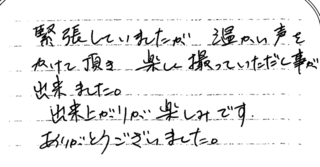 緊張していましたが 温かい声を
かけて頂き 楽しく撮っていただく事が
出来ました。
出来上がりが楽しみです。
ありがとうございました。